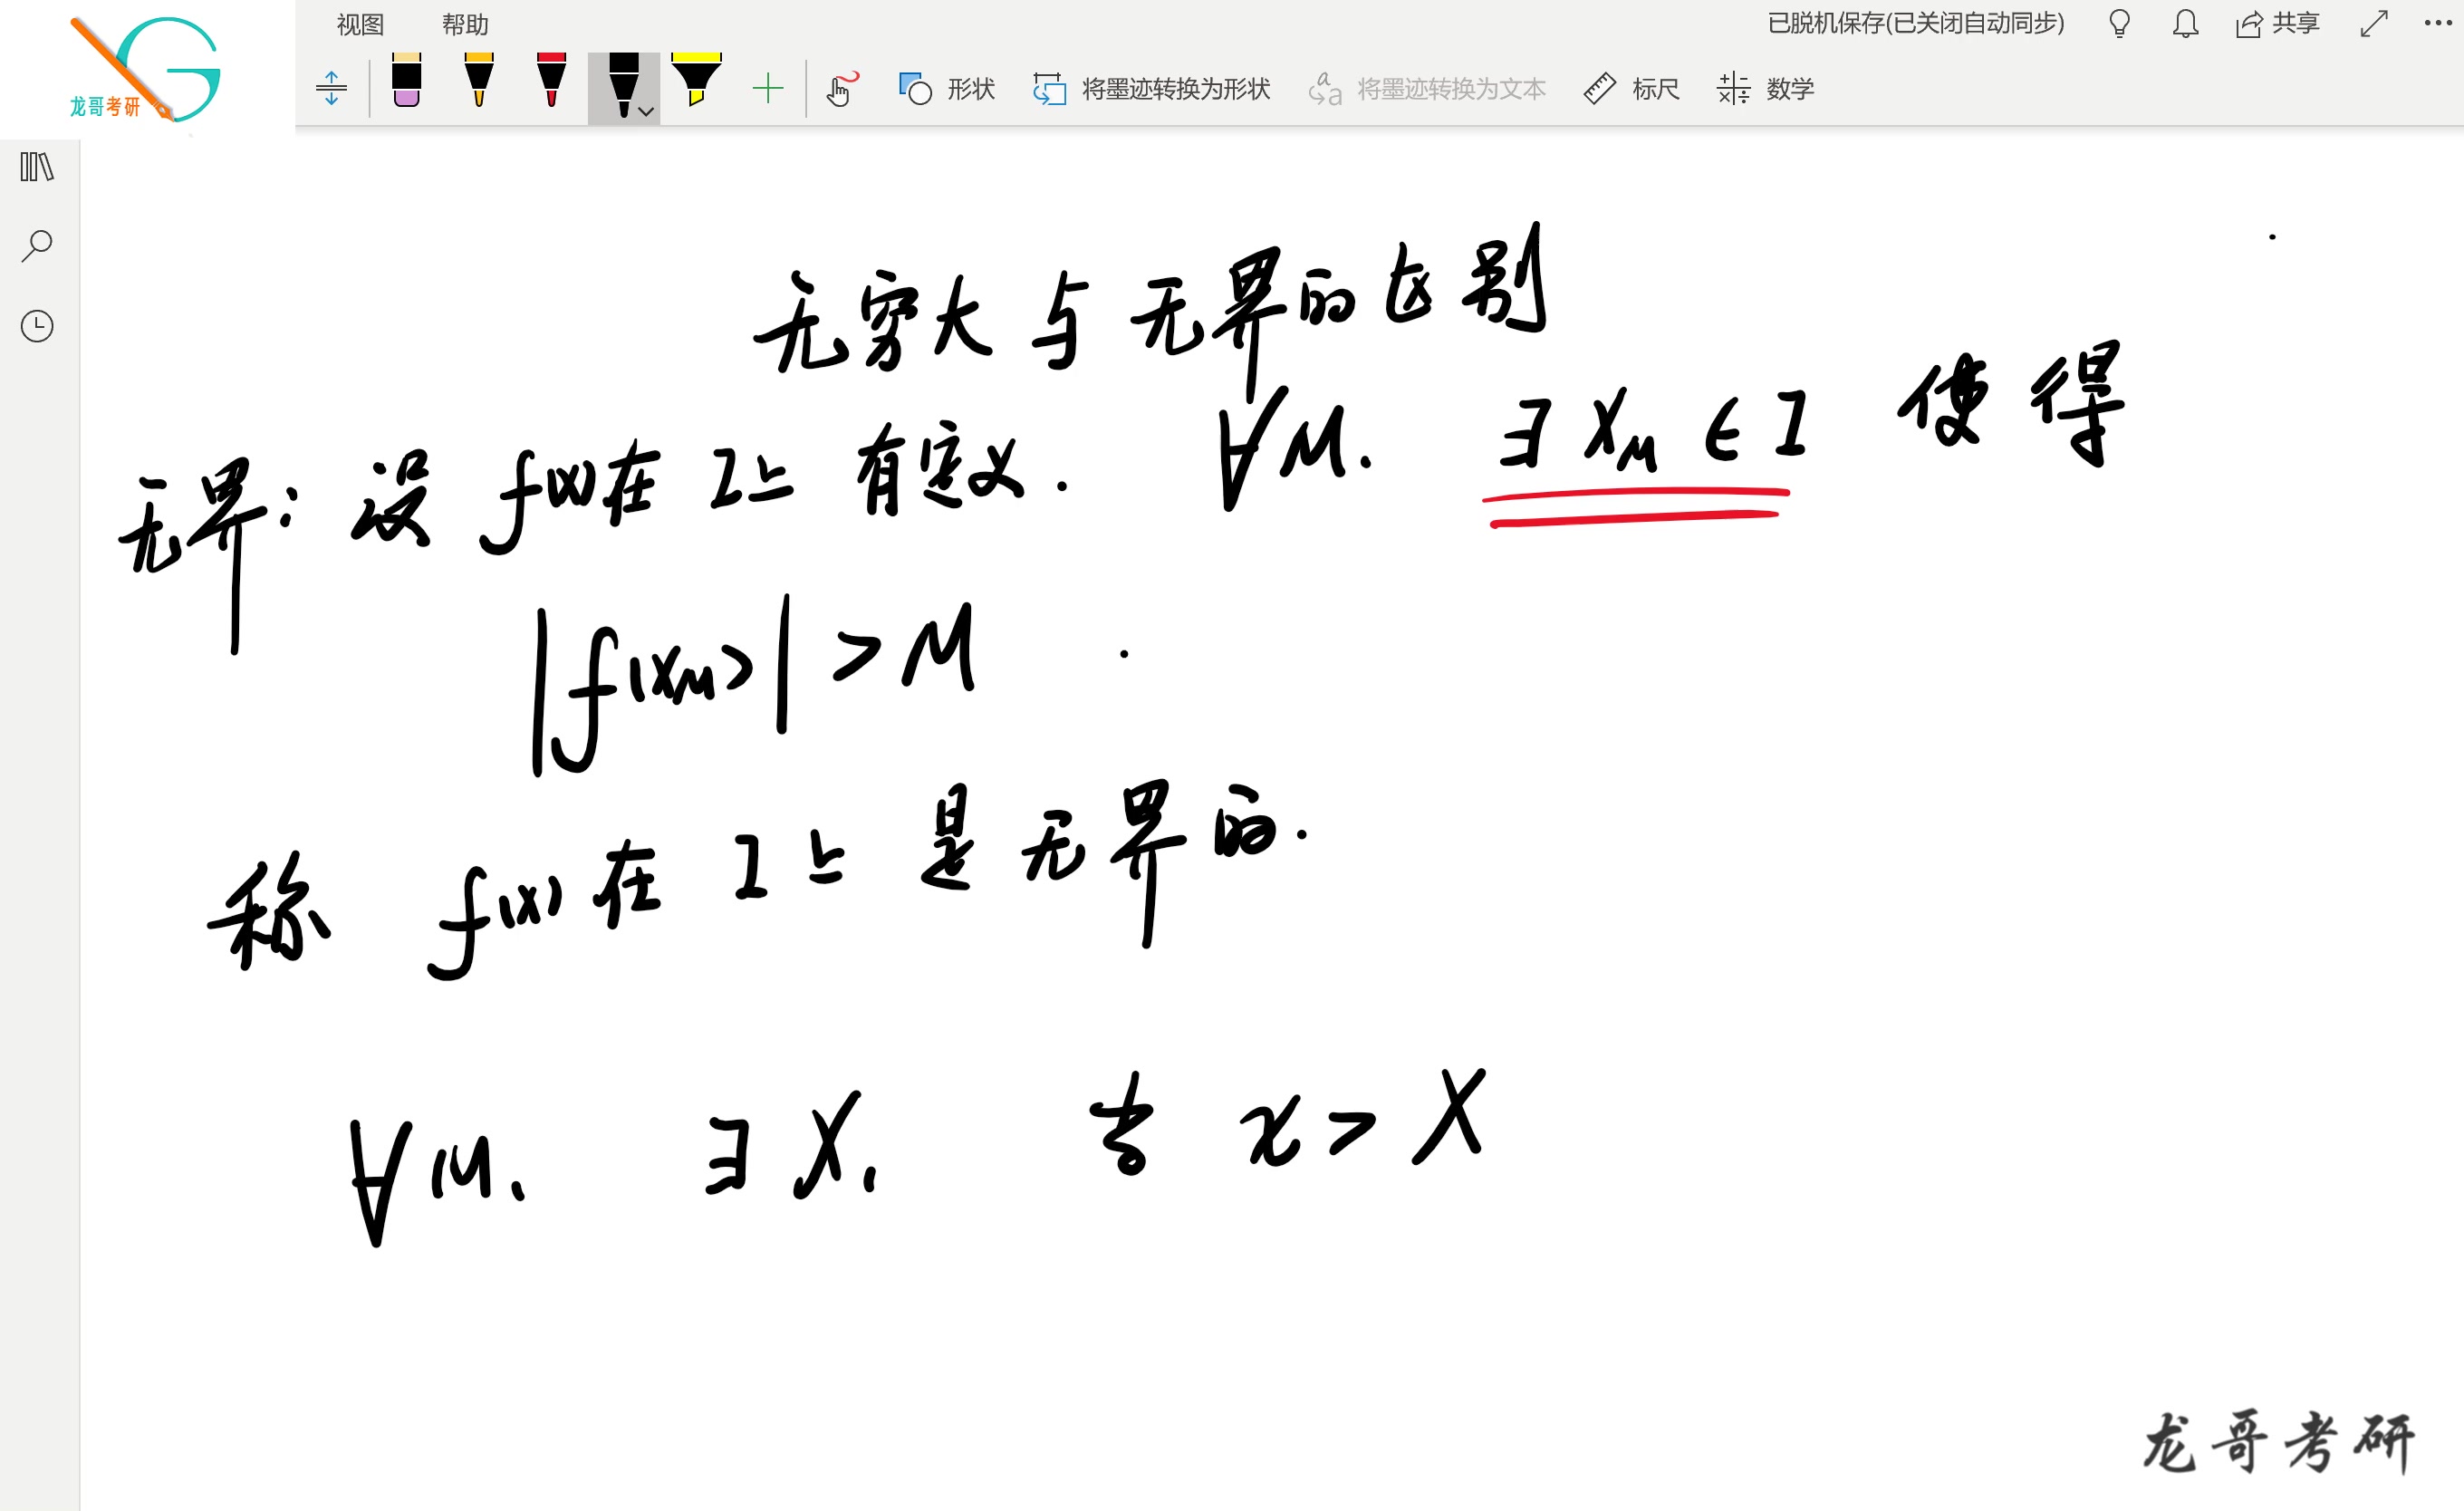 龙哥考研
视图 帮助 已脱机保存(已关闭自动同步) 共享
形状 将墨迹转换为形状 将墨迹转换为文本 标尺 数学
无穷大与无界的区别
无界: 设 f(x)在 I上 有定义. ∀M. ∃ X_M ∈ I 使得
|f(X_M)| > M .
称 f(x) 在 I 上 是 无界的.
∀M. ∃X. 当 x > X
龙哥考研